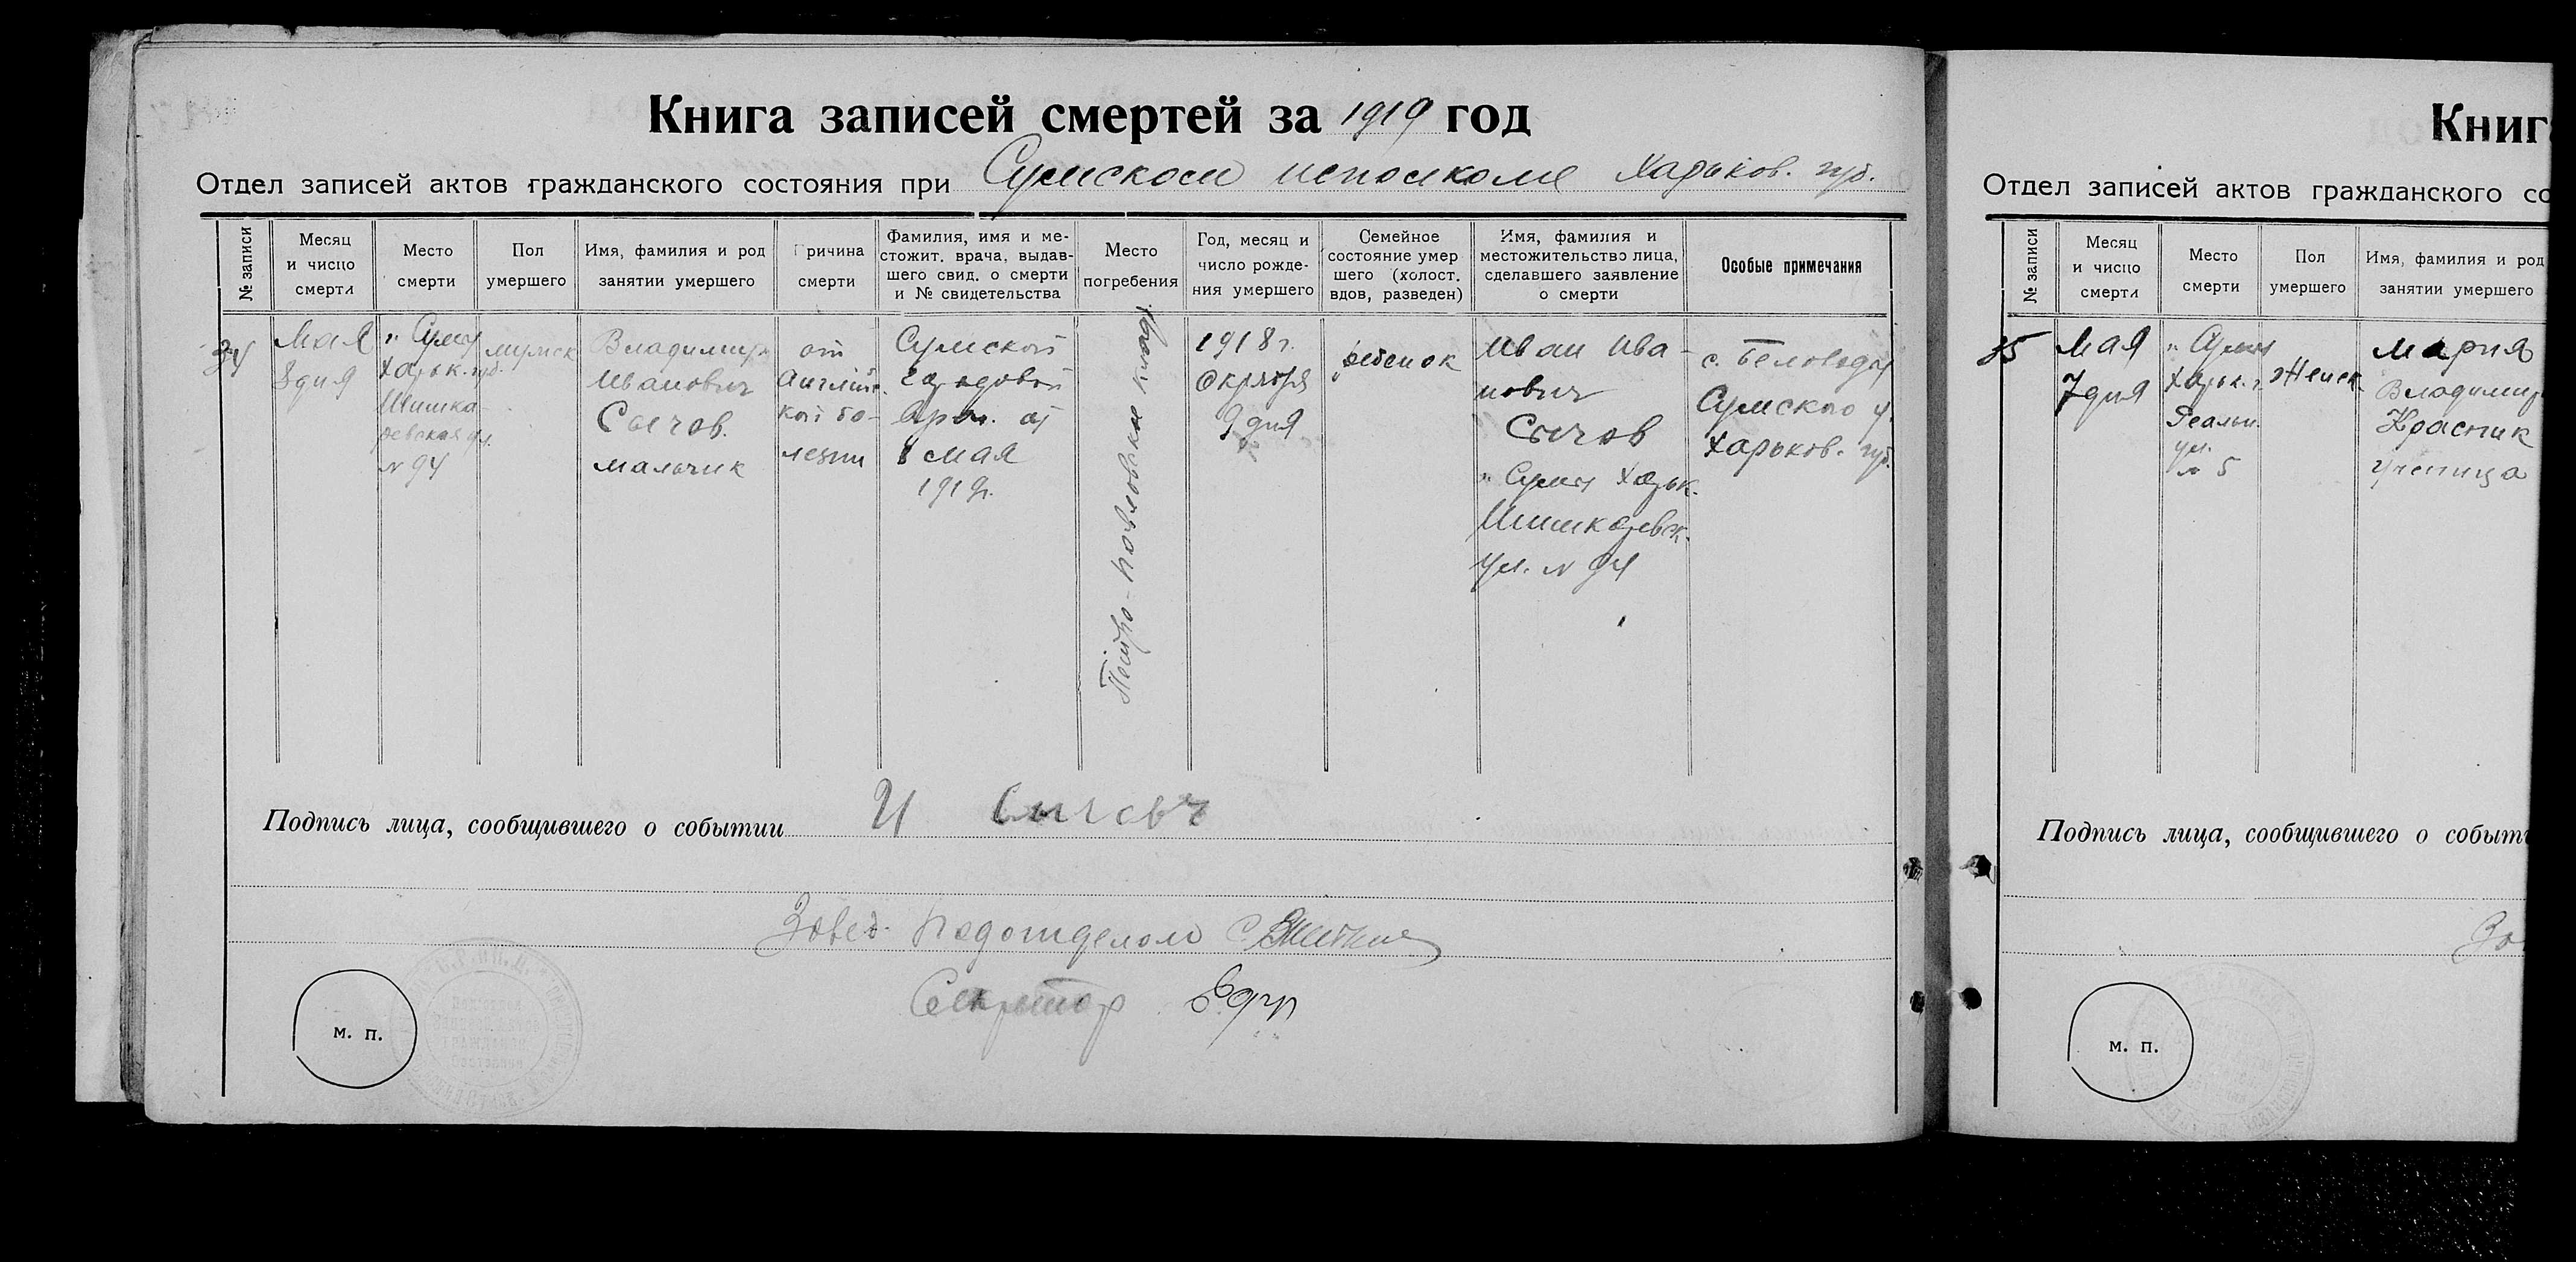 Книга записей смертей за 1919 год
Отдел записей актов гражданского состояния при Сумском исполкоме Харьков. губ.
№ записи
Месяц
и число
смерти
Место
смерти
Пол
умершего
Имя, фамилия и род
занятии умершего
Причина
смерти
Фамилия, имя и ме-
стожит. врача, выдав-
шего свид. о смерти
и № свидетельства
Место
погребения
Год, месяц и
число рожде-
ния умершего
Семейное
состояние умер
шего (холост.
вдов, разведен)
Имя, фамилия и
местожительство лица,
сделавшего заявление
о смерти
Особые примечания
34
Мая
8 дня
г. Сумы
Харьк. губ.
Шишка-
ревская ул.
№ 94
мужск
Владимир
Иванович
Сычов.
мальчик
от
Английс.
кой бо-
лезни
Сумской
городовой
врач. от
8 мая
1919г.
Петро-Павловское кладб.
1918 г.
Октября
9 дня
ребенок
Иван Ива-
нович
Сычов
г. Сумы Харьк.
Шишкаревск.
ул. № 94
с. Беловоды
Сумского у.
Харьков. губ.
Подпись лица, сообщившего о событии И Сычовъ
Завед. Подотделом
Секретар
м. п.
Книг
Отдел записей актов гражданского со
№ записи
Месяц
и число
смерти
Место
смерти
Пол
умершего
Имя, фамилия и род
занятии умершего
35
Мая
7 дня
г. Сумы
Харьк. г.
Реальн.
ул.
№ 5
Женск.
Мария
Владимир
Красник
ученица
Подпись лица, сообщившего о событи
За
м. п.